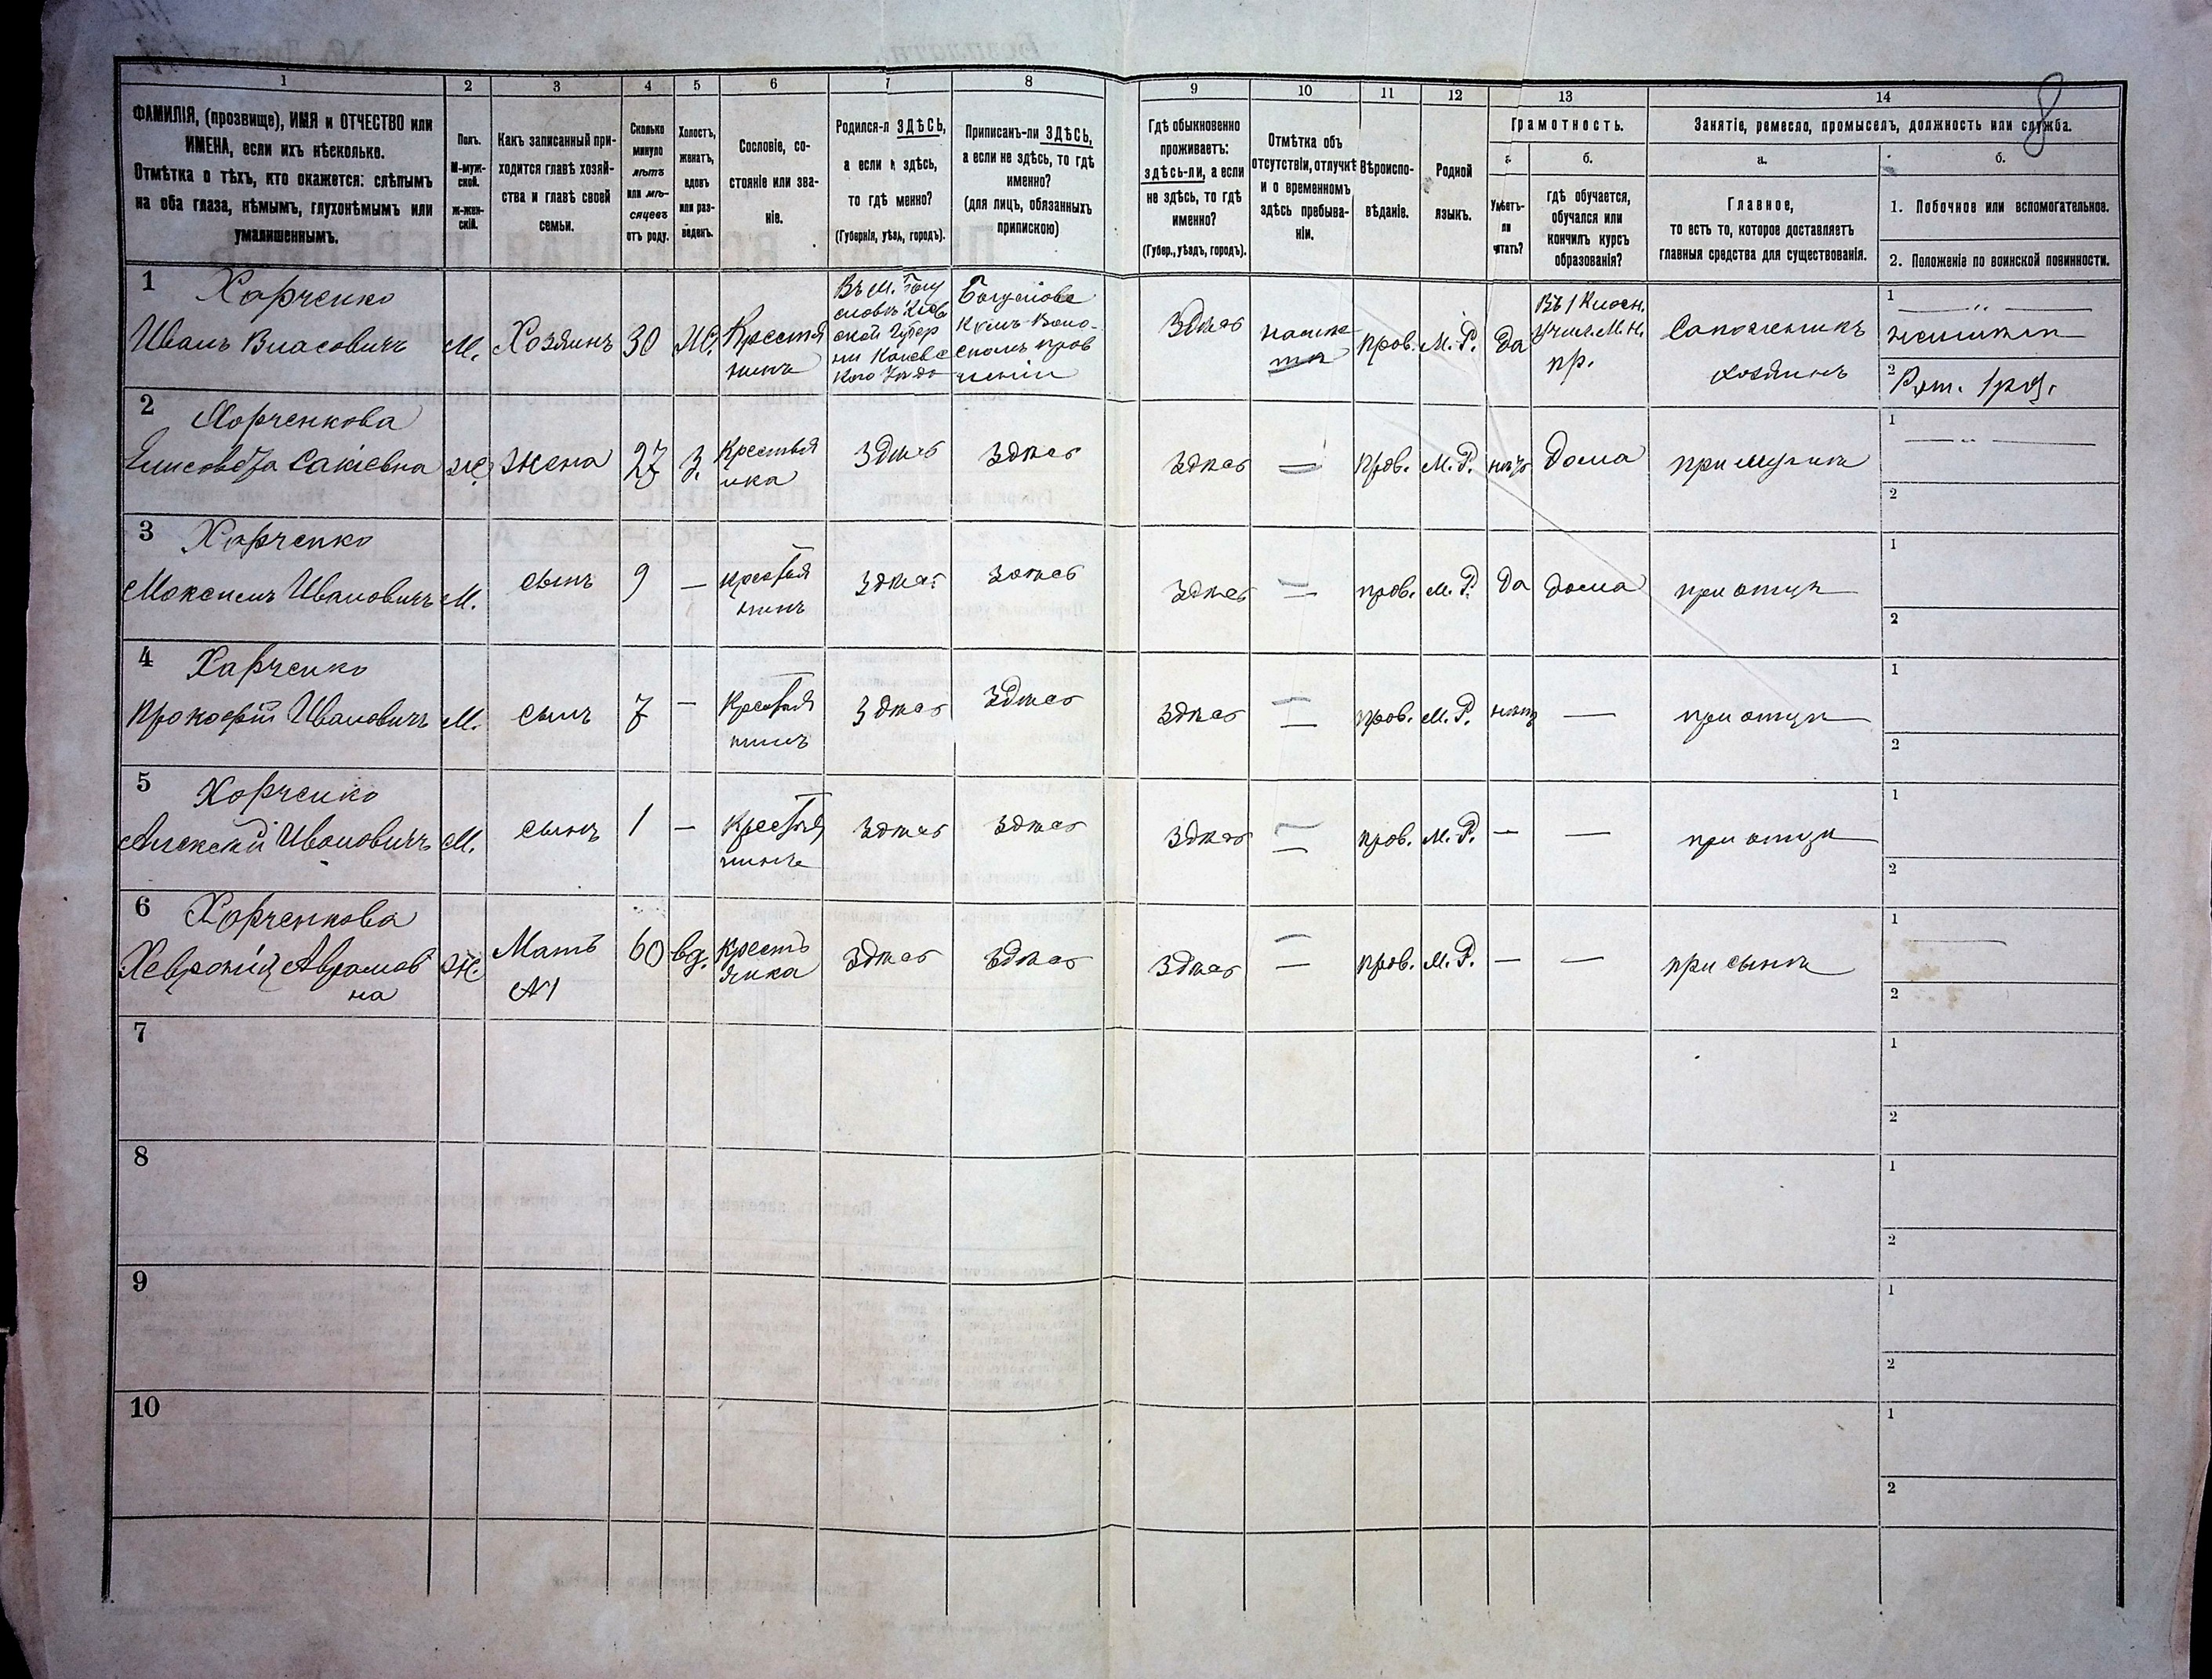 8
1 2 3 4 5 6 7 8 9 10 11 12 13 14
ФАМИЛІЯ, (прозвище), ИМЯ и ОТЧЕСТВО или
ИМЕНА, если ихъ нѣсколько.
Отмѣтка о тѣхъ, кто окажется: слѣпымъ
на оба глаза, нѣмымъ, глухонѣмымъ или
умалишеннымъ.
Полъ.
М-муж-
ской.
ж-жен-
скій.
Какъ записанный при-
ходится главѣ хозяй-
ства и главѣ своей
семьи.
Сколько
минуло
лѣтъ
или мѣ-
сяцевъ
отъ роду.
Холостъ,
женатъ,
вдовъ
или раз-
веденъ.
Сословіе, со-
стояніе или зва-
ніе.
Родился-л ЗДѢСЬ,
а если н здѣсь,
то гдѣ менно?
(Губернія, уѣзд, городъ).
Приписанъ-ли ЗДѢСЬ,
а если не здѣсь, то гдѣ
именно?
(для лицъ, обязанныхъ
припискою)
Гдѣ обыкновенно
проживаетъ:
здѣсь-ли, а если
не здѣсь, то гдѣ
именно?
(Губер., уѣздъ, городъ).
Отмѣтка объ
отсутствіи, отлучкѣ
и о временномъ
здѣсь пребыва-
ніи.
Вѣроиспо-
вѣданіе.
Родной
языкъ.
Грамотность.
а.
Умѣетъ-
ли
читать?
б.
гдѣ обучается,
обучался или
кончилъ курсъ
образованія?
Занятіе, ремесло, промыселъ, должность или служба.
а.
Главное,
то есть то, которое доставляетъ
главныя средства для существованія.
б.
1. Побочное или вспомогательное.
2. Положеніе по воинской повинности.
1 Харченко
Иванъ Власовичъ М. Хозяинъ 30 Ж. Крестья
нинъ
Въ м.
ской Губер
нии Каневс
кого
Здѣсь
пров. М. Р. да
Учил. М. Н.
пр.
Сапожникъ
хозяинъ
1
2 Рат. 1 рз.
2 Харченкова
Елисовета Сакіевна Ж. жена 27 З. Крестья
нка
Здѣсь Здѣсь Здѣсь — пров. М. Р. нѣтъ Дома при мужѣ
1
2
3 Харченко
Максимъ Ивановичъ М. сынъ 9 — крестья
нинъ
Здѣсь Здѣсь Здѣсь — пров. М. Р. да дома при отцѣ
1
2
4 Харченко
Прокофій Ивановичъ М. сынъ 7 — Крестья
нинъ
Здѣсь Здѣсь Здѣсь — пров. М. Р. нѣтъ — при отцѣ
1
2
5 Харченко
Алексѣй Ивановичъ М. сынъ 1 — Крестья
нинъ
Здѣсь Здѣсь Здѣсь — пров. М. Р. — — при отцѣ
1
2
6 Харченкова
Хевронія Аврамов
на
Ж. Мать
№1
60 вд. Кресть
янка
Здѣсь Здѣсь Здѣсь — пров. М. Р. — — при сынѣ
1
2
7
1
2
8
1
2
9
1
2
10
1
2